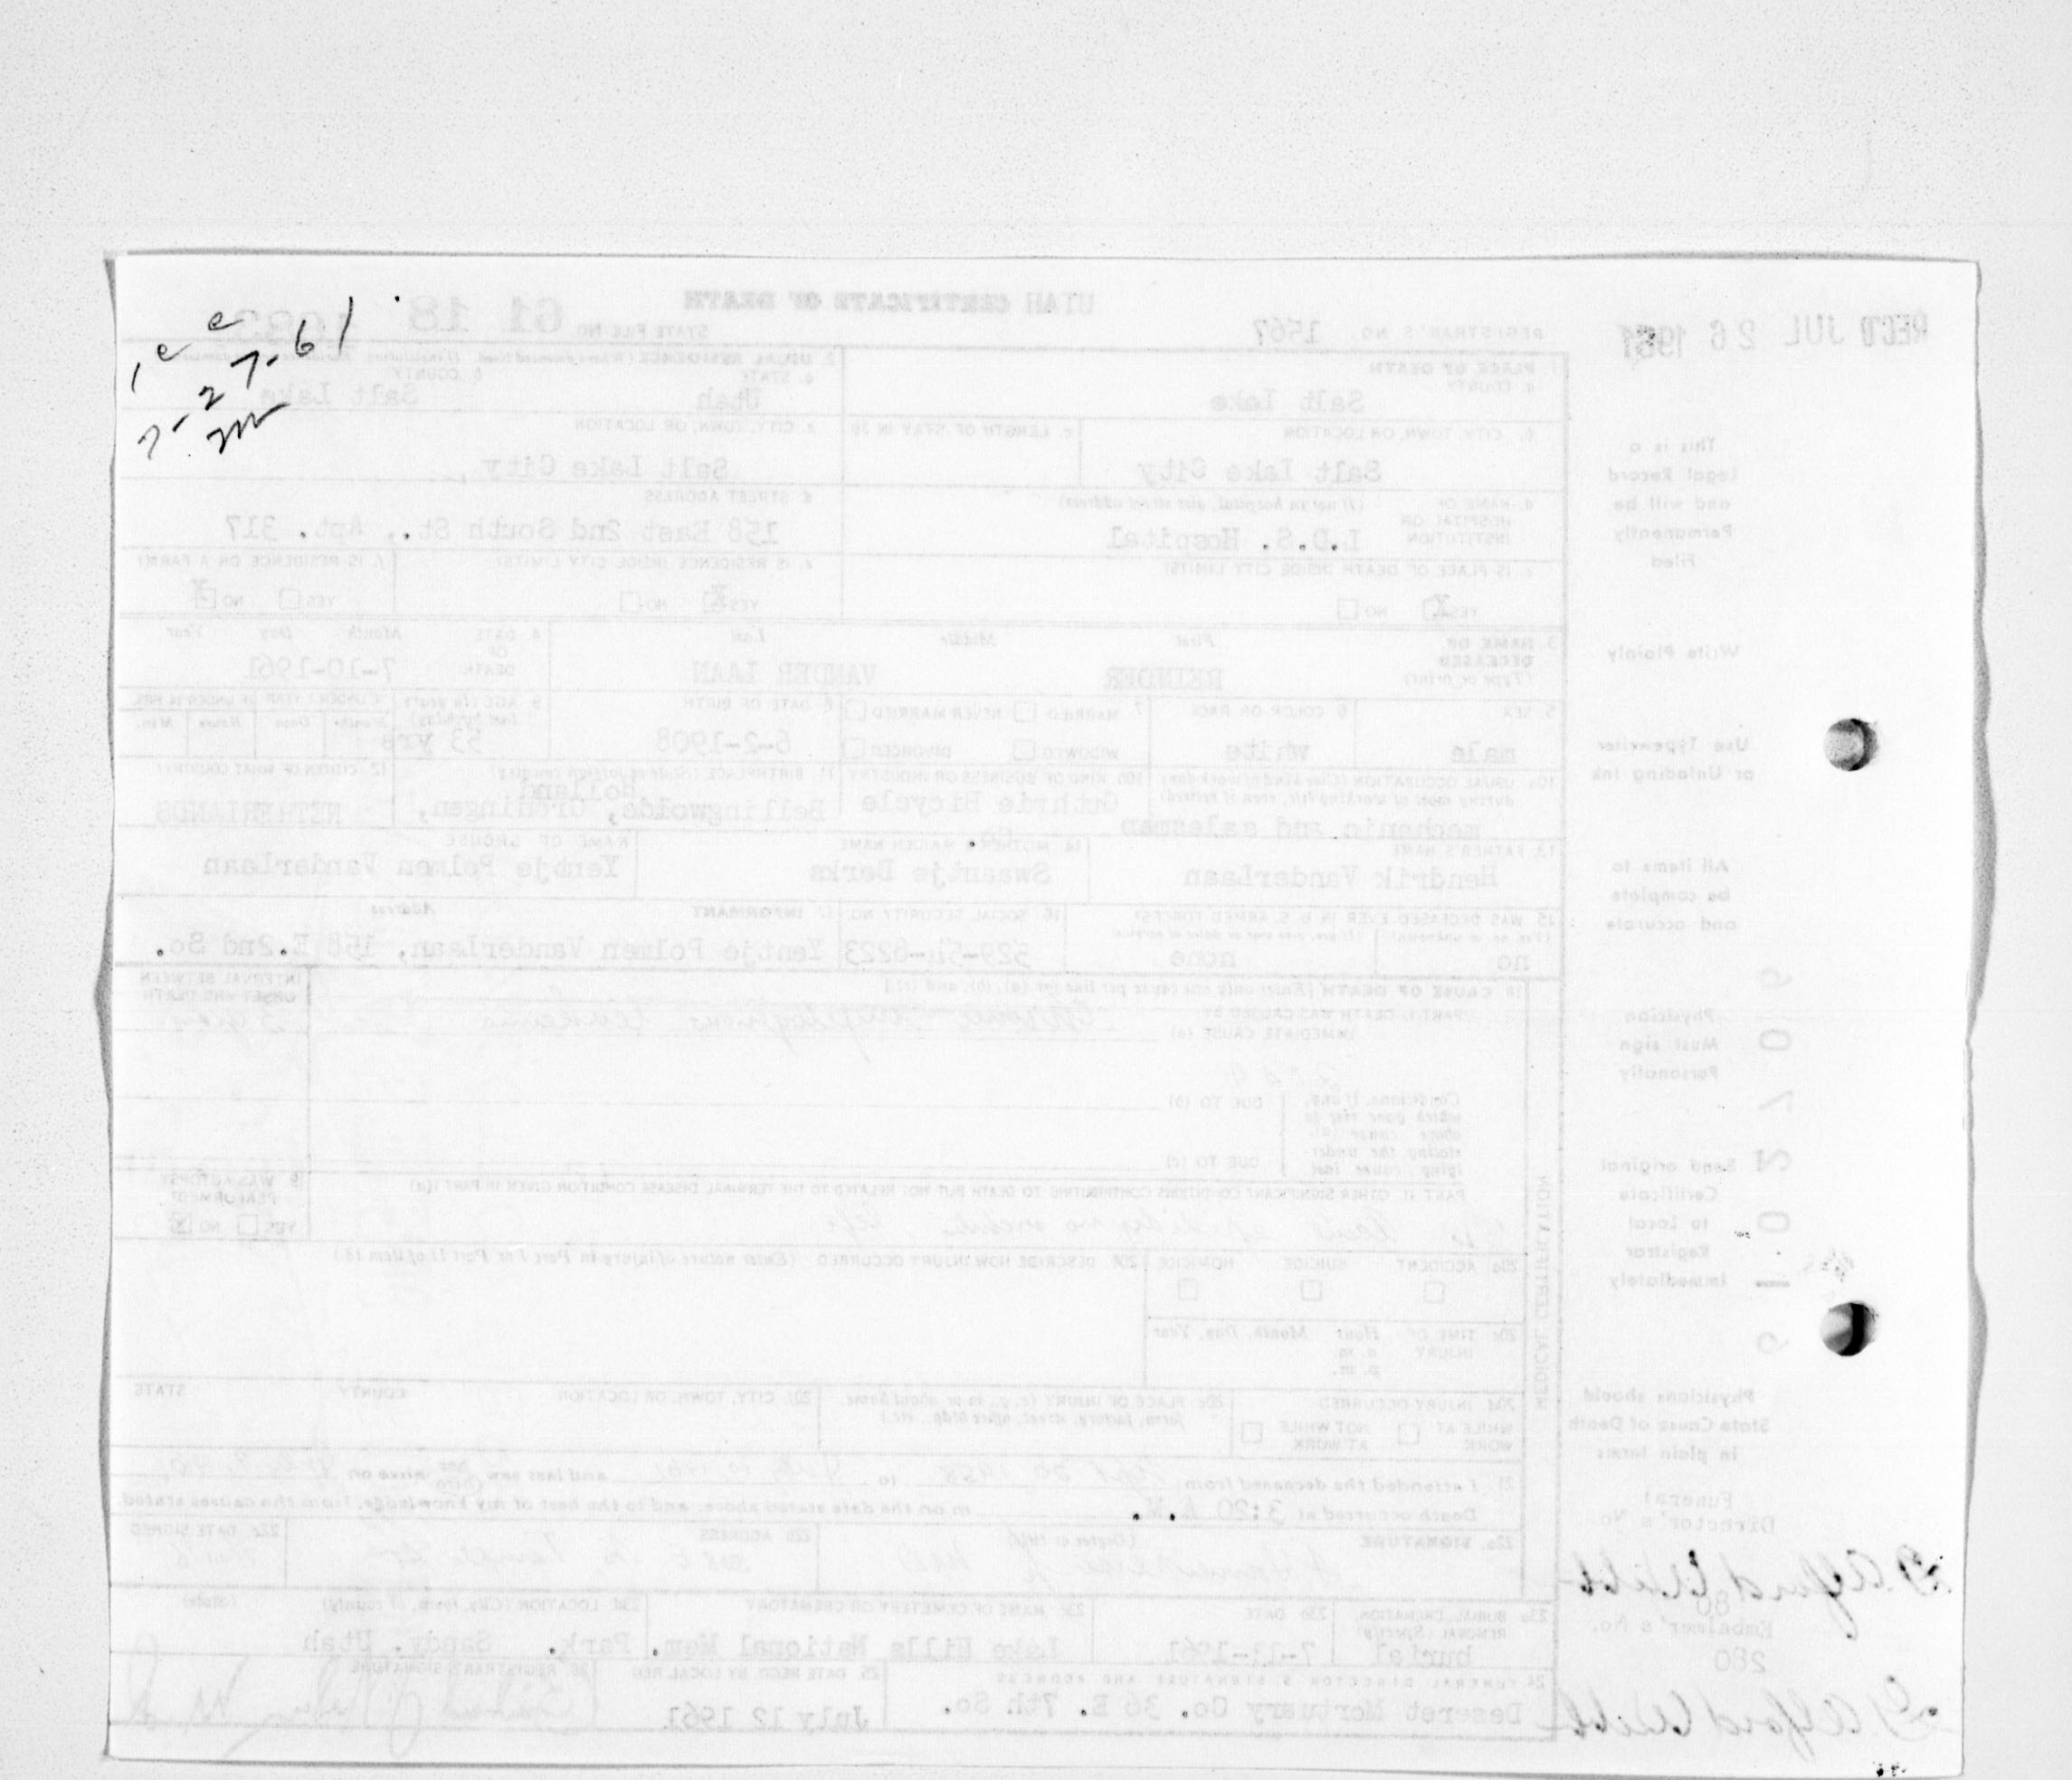 REC'D JUL 26 1961
UTAH CERTIFICATE OF DEATH
REGISTRAR'S NO. 1567
STATE FILE NO. 61 18
1. PLACE OF DEATH
a. COUNTY
Salt Lake
2. USUAL RESIDENCE
a. STATE
Utah
b. COUNTY
Salt Lake
b. CITY, TOWN, OR LOCATION
Salt Lake City
c. LENGTH OF STAY IN 1b
c. CITY, TOWN, OR LOCATION
Salt Lake City,
d. NAME OF HOSPITAL OR INSTITUTION
(If not in hospital, give street address)
L.D.S. Hospital
d. STREET ADDRESS
158 East 2nd South St., Apt. 317
e. IS PLACE OF DEATH INSIDE CITY LIMITS?
YES X NO
e. IS RESIDENCE INSIDE CITY LIMITS?
YES X NO
f. IS RESIDENCE ON A FARM?
YES NO X
3. NAME OF DECEASED
(Type or print)
First Middle Last
REINDER VANDER LAAN
4. DATE OF DEATH
Month Day Year
7-10-1961
5. SEX
male
6. COLOR OR RACE
white
7. MARRIED NEVER MARRIED
WIDOWED DIVORCED
8. DATE OF BIRTH
6-2-1908
9. AGE (In years last birthday)
53 yrs
IF UNDER 1 YEAR
Months Days
IF UNDER 24 HRS.
Hours Min.
10a. USUAL OCCUPATION (Give kind of work done during most of working life, even if retired)
mechanic and salesman
10b. KIND OF BUSINESS OR INDUSTRY
Guthrie Bicycle Co.
11. BIRTHPLACE (State or foreign country)
Bellingwolde, Groningen, Holland
12. CITIZEN OF WHAT COUNTRY?
NETHERLANDS
13. FATHER'S NAME
Hendrik VanderLaan
14. MOTHER'S MAIDEN NAME
Swaantje Derks
NAME OF SPOUSE
Yentje Polmen VanderLaan
15. WAS DECEASED EVER IN U.S. ARMED FORCES?
(Yes, no, or unknown) (If yes, give war or dates of service)
no none
16. SOCIAL SECURITY NO.
529-54-8223
17. INFORMANT Address
Yentje Polmen VanderLaan, 158 E.2nd So.
18. CAUSE OF DEATH [Enter only one cause per line for (a), (b), and (c).]
PART I. DEATH WAS CAUSED BY:
IMMEDIATE CAUSE (a) Leukemia
INTERVAL BETWEEN ONSET AND DEATH
Conditions, if any, which gave rise to above cause (a), stating the underlying cause last
DUE TO (b)
DUE TO (c)
PART II. OTHER SIGNIFICANT CONDITIONS CONTRIBUTING TO DEATH BUT NOT RELATED TO THE TERMINAL DISEASE CONDITION GIVEN IN PART I(a)
19. WAS AUTOPSY PERFORMED?
YES NO X
20a. ACCIDENT SUICIDE HOMICIDE
20b. DESCRIBE HOW INJURY OCCURRED (Enter nature of injury in Part I or Part II of item 18.)
20c. TIME OF INJURY
Hour Month, Day, Year
a. m.
p. m.
20d. INJURY OCCURRED
WHILE AT WORK NOT WHILE AT WORK
20e. PLACE OF INJURY (e.g., in or about home, farm, factory, street, office bldg., etc.)
20f. CITY, TOWN, OR LOCATION COUNTY STATE
21. I attended the deceased from Sept 30 1958 to July 10 1961 and last saw him alive on
Death occurred at 3:20 A.M. m on the date stated above; and to the best of my knowledge, from the causes stated.
22a. SIGNATURE (Degree or title)
22b. ADDRESS
22c. DATE SIGNED
23a. BURIAL, CREMATION, REMOVAL (Specify)
burial
23b. DATE
7-13-1961
23c. NAME OF CEMETERY OR CREMATORY
Lake Hills National Mem. Park.
23d. LOCATION (City, town, or county) (State)
Sandy, Utah
24. FUNERAL DIRECTOR'S SIGNATURE AND ADDRESS
Deseret Mortuary Co. 36 E. 7th So.
25. DATE RECD. BY LOCAL REG.
July 12 1961
26. REGISTRAR'S SIGNATURE
MEDICAL CERTIFICATION
This is a
Legal Record
and will be
Permanently
Filed
Write Plainly
Use Typewriter
or Unfading Ink
All items to
be complete
and accurate
Physician
Must sign
Personally
Send original
Certificate
to Local
Registrar
Immediately
Physicians should
State Cause of Death
in plain terms
Funeral
Director's No.
80
Embalmer's No.
280
7-27-61